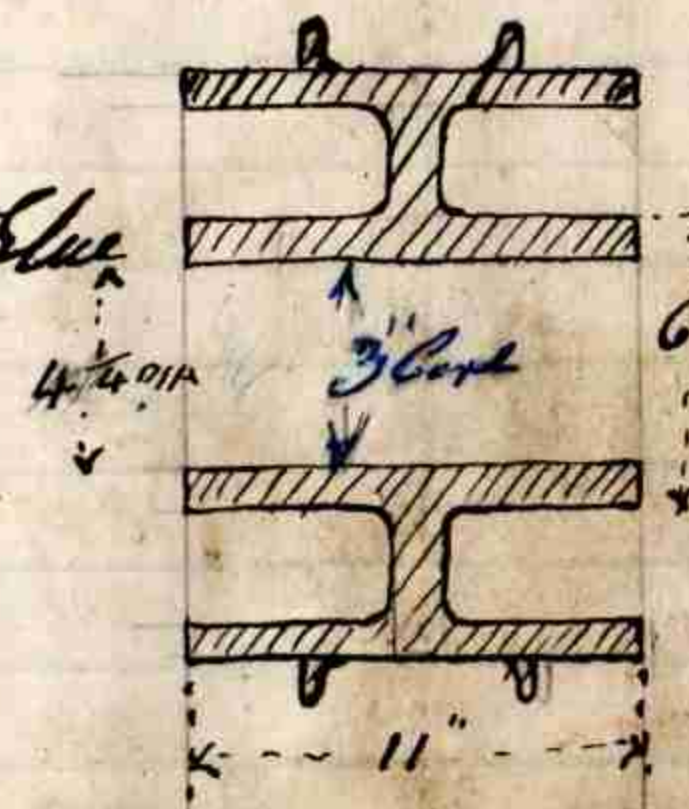 Blue
4 1/4 DIA
3" Core
6
11"